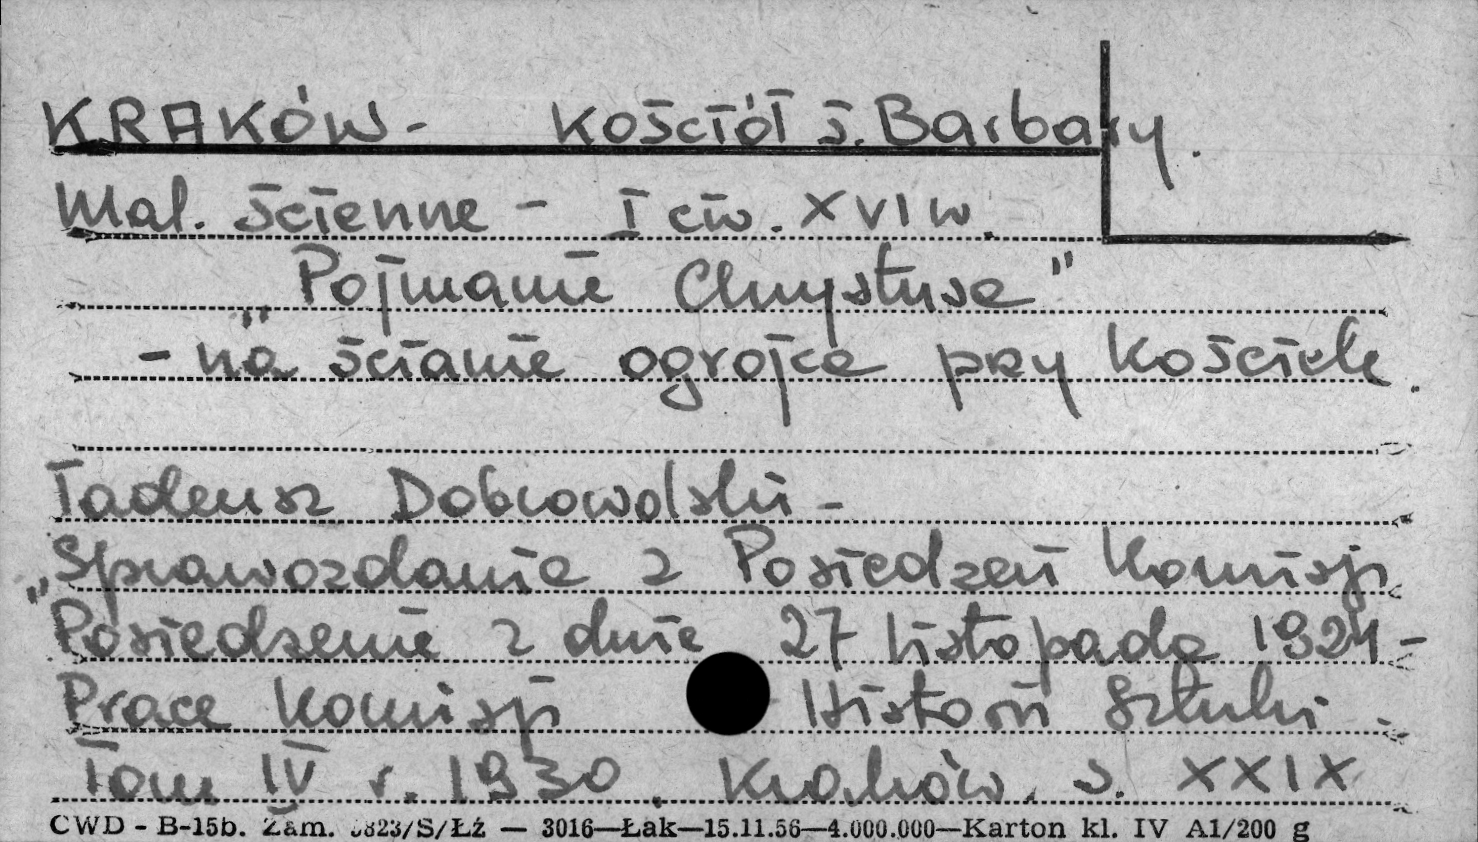 KRAKÓW - Kościół ś. Barbary.
Mal. ścienne - I ćw. XVI w.
"Pojmanie Chrystusa"
- na ścianie ogrojca przy Kościele.
Tadeusz Dobrowolski -
"Sprawozdanie z Posiedzeń Komisji
Posiedzenie z dnia 27 listopada 1924 -
Prace Komisji Historii Sztuki
Tom IV r. 1930. Kraków. s. XXIX
CWD - B-15b. Zam. 5823/S/Łź — 3016—Łak—15.11.56—4.000.000—Karton kl. IV A1/200 g